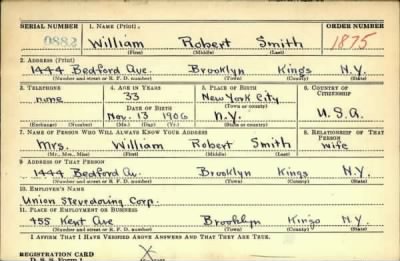 SERIAL NUMBER 1. NAME (Print) ORDER NUMBER
0882 William Robert Smith 1875
(First) (Middle) (Last)
2. ADDRESS (Print)
1444 Bedford Ave. Brooklyn Kings N.Y.
(Number and street or R. F. D. number) (Town) (County) (State)
3. TELEPHONE 4. AGE IN YEARS 5. PLACE OF BIRTH 6. COUNTRY OF CITIZENSHIP
none 33 New York City
DATE OF BIRTH (Town or county)
Nov. 13 1906 N.Y. U.S.A.
(Exchange) (No.) (Mo.) (Day) (Yr.) (State or country)
7. NAME OF PERSON WHO WILL ALWAYS KNOW YOUR ADDRESS 8. RELATIONSHIP OF THAT PERSON
Mrs. William Robert Smith wife
(Mr., Mrs., Miss) (First) (Middle) (Last)
9. ADDRESS OF THAT PERSON
1444 Bedford Av. Brooklyn Kings N.Y.
(Number and street or R. F. D. number) (Town) (County) (State)
10. EMPLOYER'S NAME
Union Stevedoring Corp.
11. PLACE OF EMPLOYMENT OR BUSINESS
455 Kent Ave Brooklyn Kings N.Y.
(Number and street or R. F. D. number) (Town) (County) (State)
I AFFIRM THAT I HAVE VERIFIED ABOVE ANSWERS AND THAT THEY ARE TRUE.
REGISTRATION CARD
D. S. S. Form 1